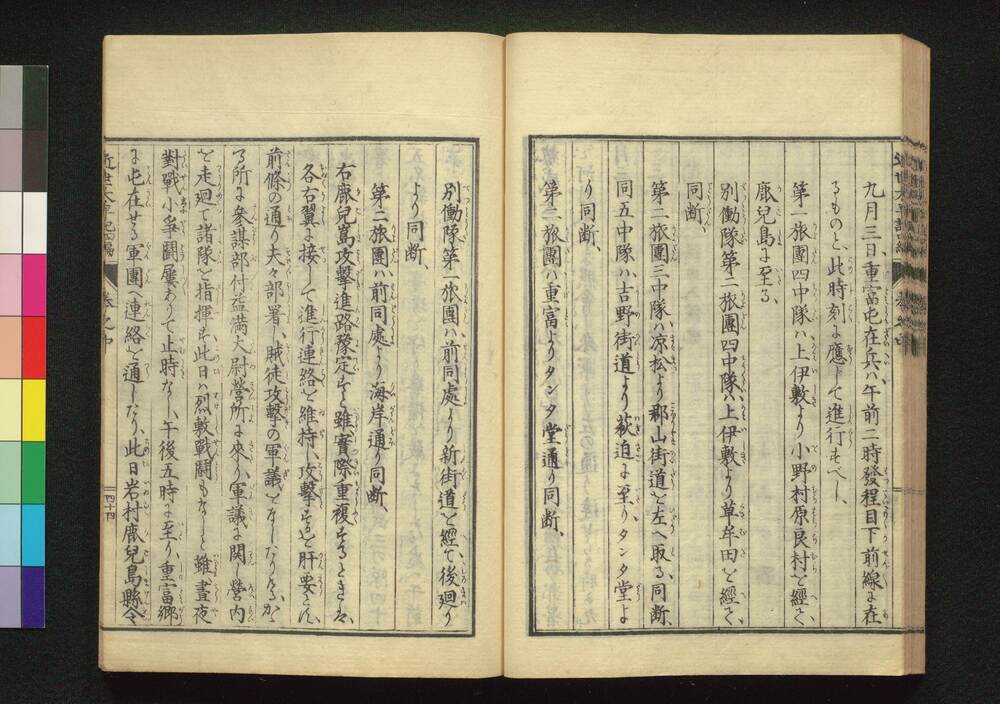 九月三日重富屯在兵ハ午前二時發程目下前線に在
るものと、此時刻に應じて進行すべし、
第一旅團四中隊ハ上伊敷より小野村原良村を經て
鹿兒島に至る、
別働隊第二旅團四中隊ハ上伊敷より草牟田を經て
同断、
第二旅團三中隊ハ凉松より郡山街道を左へ取る、同断、
同五中隊ハ吉野街道より萩迫に至り、タンタ堂よ
り同断、
第三旅團ハ重富よりタンタ堂通り同断、
別働隊第一旅團ハ前同處より新街道を經て後廻り
より同断、
第二旅團ハ前同處より海岸通り同断、
右鹿兒嶌攻擊進路豫定すと雖、實際重複するときハ、
各右翼に接して進行連絡を維持し、攻擊するを肝要とす、
前條の通り夫々部署し、賊徒攻擊の軍議をなしたりけるが
る所に參謀部付益滿大尉營所に來り、軍議に関し營内
を走廻て諸隊を指揮す、此日ハ烈敷戰鬪もなしと雖晝夜
對戰小爭鬪屢ありて止時なし、午後五時に至り、重富郷
に屯在せる軍團、連絡を通したり、此日岩村鹿兒島縣令
近世太平記四編
卷之中
四十四